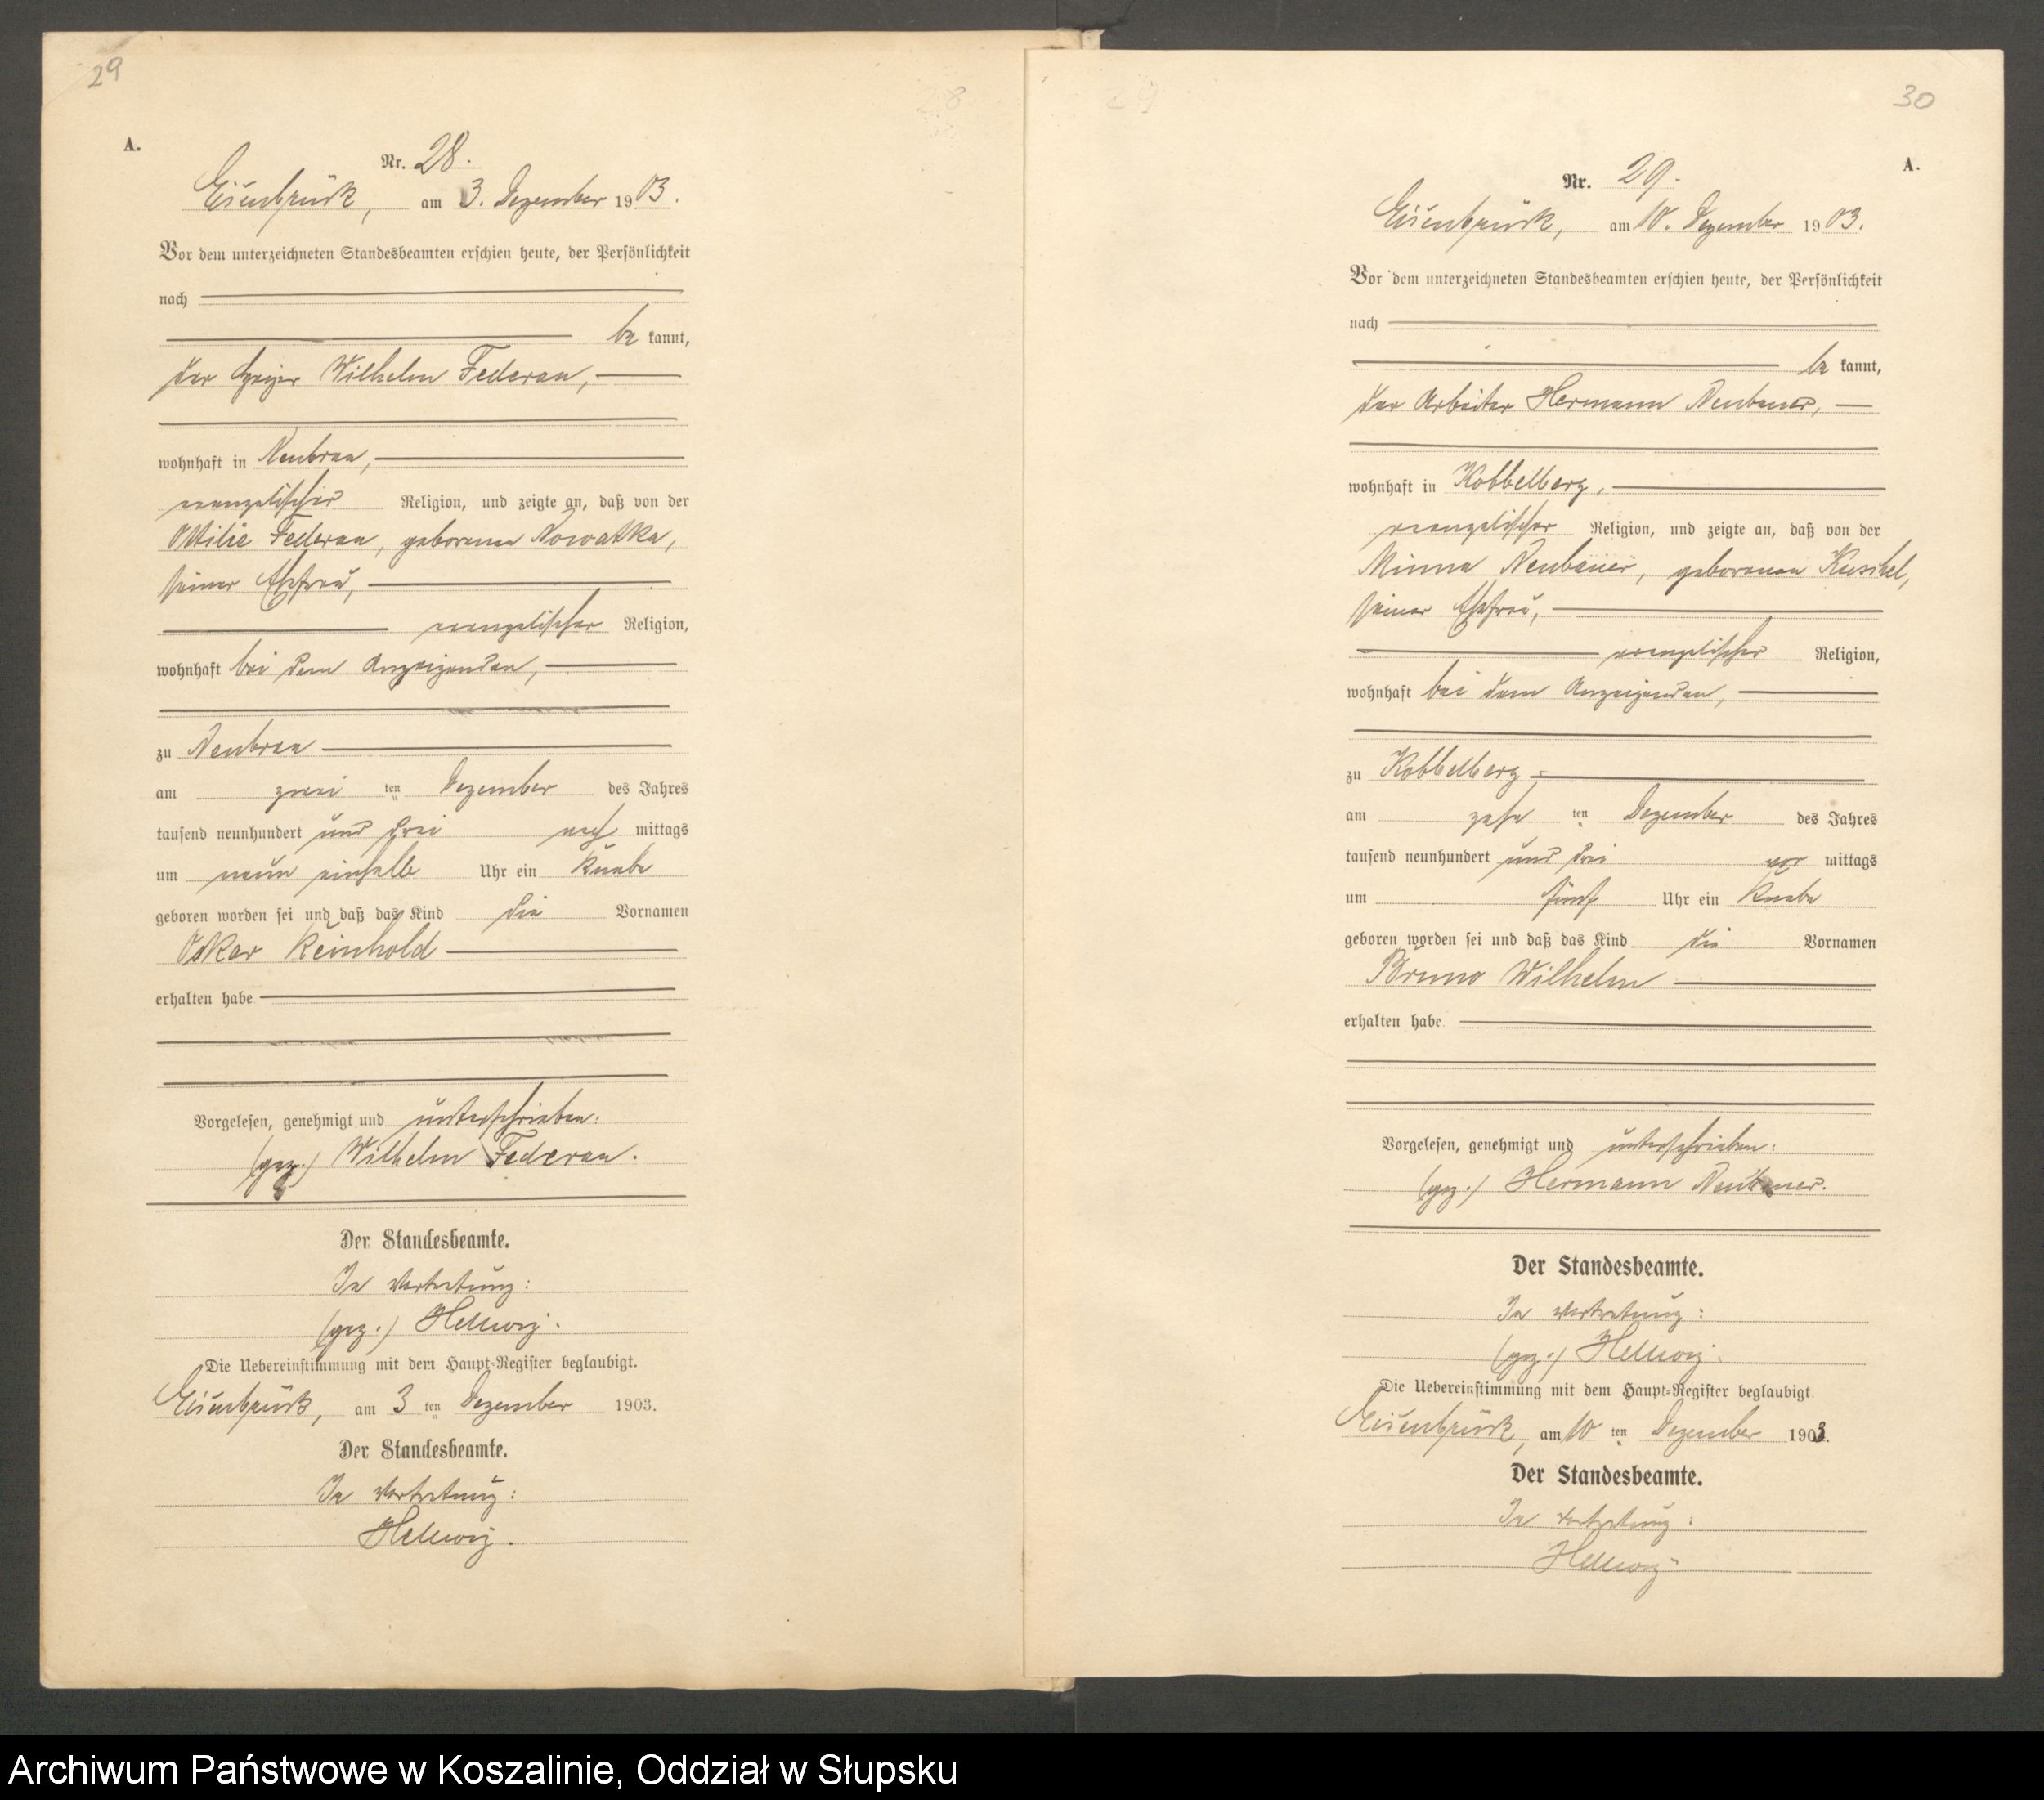 29
28
A.
Nr. 28.
Eisenbrück, am 3. Dezember 1903.
Vor dem unterzeichneten Standesbeamten erschien heute, der Persönlichkeit
nach
be kannt,
der Wilhelm Federau,
wohnhaft in Neubrau,
evangelischer Religion, und zeigte an, daß von der
Ottilie Federau, geborenen Nowatka,
seiner Ehefrau,
evangelischer Religion,
wohnhaft bei dem Anzeigenden,
zu Neubrau
am zwei ten Dezember des Jahres
tausend neunhundert und drei nach mittags
um neun einhalb Uhr ein Knabe
geboren worden sei und daß das Kind die Vornamen
Oskar Reinhold
erhalten habe
Vorgelesen, genehmigt und unterschrieben:
(gez.) Wilhelm Federau.
Der Standesbeamte.
In Vertretung:
(gez.) Hellwig.
Die Uebereinstimmung mit dem Haupt-Register beglaubigt.
Eisenbrück, am 3 ten Dezember 1903.
Der Standesbeamte.
In Vertretung:
Hellwig.
29
30
A.
Nr. 29.
Eisenbrück, am 10. Dezember 1903.
Vor dem unterzeichneten Standesbeamten erschien heute, der Persönlichkeit
nach
be kannt,
der Arbeiter Hermann Neubauer,
wohnhaft in Kobbelberg,
evangelischer Religion, und zeigte an, daß von der
Minna Neubauer, geborenen Kuschel,
seiner Ehefrau,
evangelischer Religion,
wohnhaft bei dem Anzeigenden,
zu Kobbelberg
am zehn ten Dezember des Jahres
tausend neunhundert und drei vor mittags
um fünf Uhr ein Knabe
geboren worden sei und daß das Kind die Vornamen
Bruno Wilhelm
erhalten habe
Vorgelesen, genehmigt und unterschrieben:
(gez.) Hermann Neubauer.
Der Standesbeamte.
In Vertretung:
(gez.) Hellwig.
Die Uebereinstimmung mit dem Haupt-Register beglaubigt.
Eisenbrück, am 10 ten Dezember 1903.
Der Standesbeamte.
In Vertretung:
Hellwig
Archiwum Państwowe w Koszalinie, Oddział w Słupsku